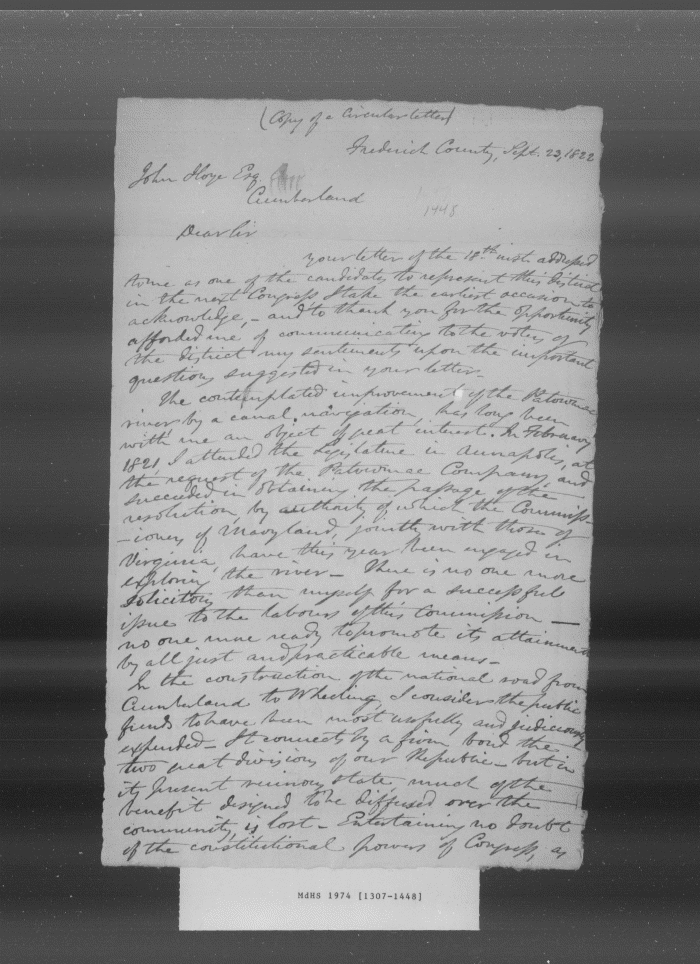 (Copy of a Circular letter)
Frederick County, Sept. 23, 1822
John Hoye Esq.
Cumberland
1448
Dear Sir
your letter of the 18th inst. addressed
to me as one of the candidates to represent this District
in the next Congress I take the earliest occasion to
acknowledge, – and to thank you for the opportunity
afforded me of communicating to the voters of
the district my sentiments upon the important
questions suggested in your letter.
The contemplated improvement of the Patowmac
river by a canal navigation, has long been
with me an object of great interest. In February
1821 I attended the Legislature in Annapolis, at
the request of the Patowmac Company, and
succeeded in obtaining the passage of the
resolution, by authority of which the Commiss-
-ioners of Maryland, jointly with those of
Virginia, have this year been engaged in
exploring the river – There is no one more
solicitous than myself for a successful
issue to the labours of this Commission —
no one more ready to promote its attainment
by all just and practicable means –
In the construction of the national road from
Cumberland to Wheeling, I consider the public
funds to have been most usefully and judiciously
expended – It connects by a firm bond the
two great divisions of our Republic – but in
its present ruinous state much of the
benefit designed to be diffused over the
community, is lost – Entertaining no doubt
of the constitutional powers of Congress, as
MdHS 1974 [1307-1448]